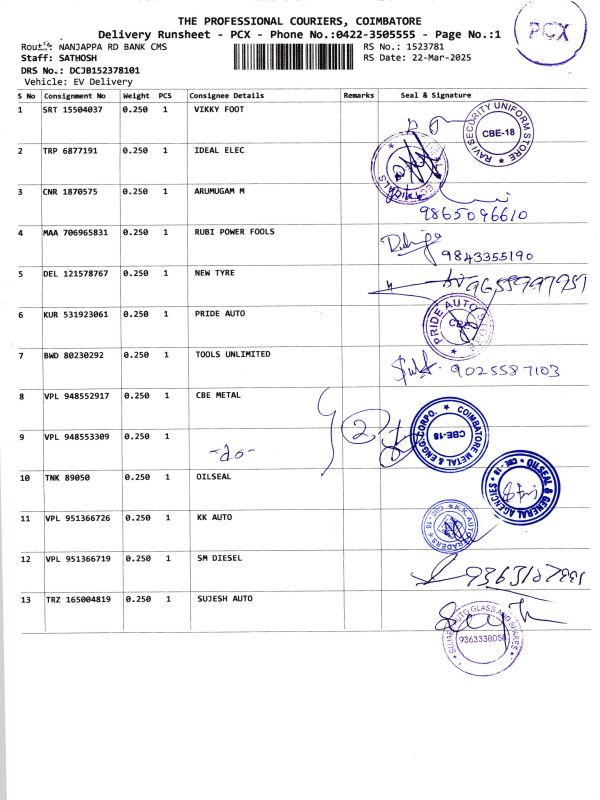 THE PROFESSIONAL COURIERS, COIMBATORE
Delivery Runsheet - PCX - Phone No.:0422-3505555 - Page No.:1
PCX
Route: NANJAPPA RD BANK CMS
RS No.: 1523781
Staff: SATHOSH
RS Date: 22-Mar-2025
DRS No.: DCJB152378101
Vehicle: EV Delivery
S No Consignment No Weight PCS Consignee Details Remarks Seal & Signature
1 SRT 15504037 0.250 1 VIKKY FOOT
RAVI SECURITY UNIFORM STORE CBE-18
2 TRP 6877191 0.250 1 IDEAL ELEC
3 CNR 1870575 0.250 1 ARUMUGAM M
9865096610
4 MAA 706965831 0.250 1 RUBI POWER FOOLS
9843355190
5 DEL 121578767 0.250 1 NEW TYRE
6 KUR 531923061 0.250 1 PRIDE AUTO
PRIDE AUTO
7 BWD 80230292 0.250 1 TOOLS UNLIMITED
9025587103
8 VPL 948552917 0.250 1 CBE METAL
2
COIMBATORE METAL & ENGG. CORPO. CBE-18
9 VPL 948553309 0.250 1 -do-
10 TNK 89050 0.250 1 OILSEAL
OILSEAL & GENERAL AGENCIES CBE-18
11 VPL 951366726 0.250 1 KK AUTO
K.K. AUTO TRADERS CBE-18
12 VPL 951366719 0.250 1 SM DIESEL
13 TRZ 165004819 0.250 1 SUJESH AUTO
AUTO GLASS AND SPARES